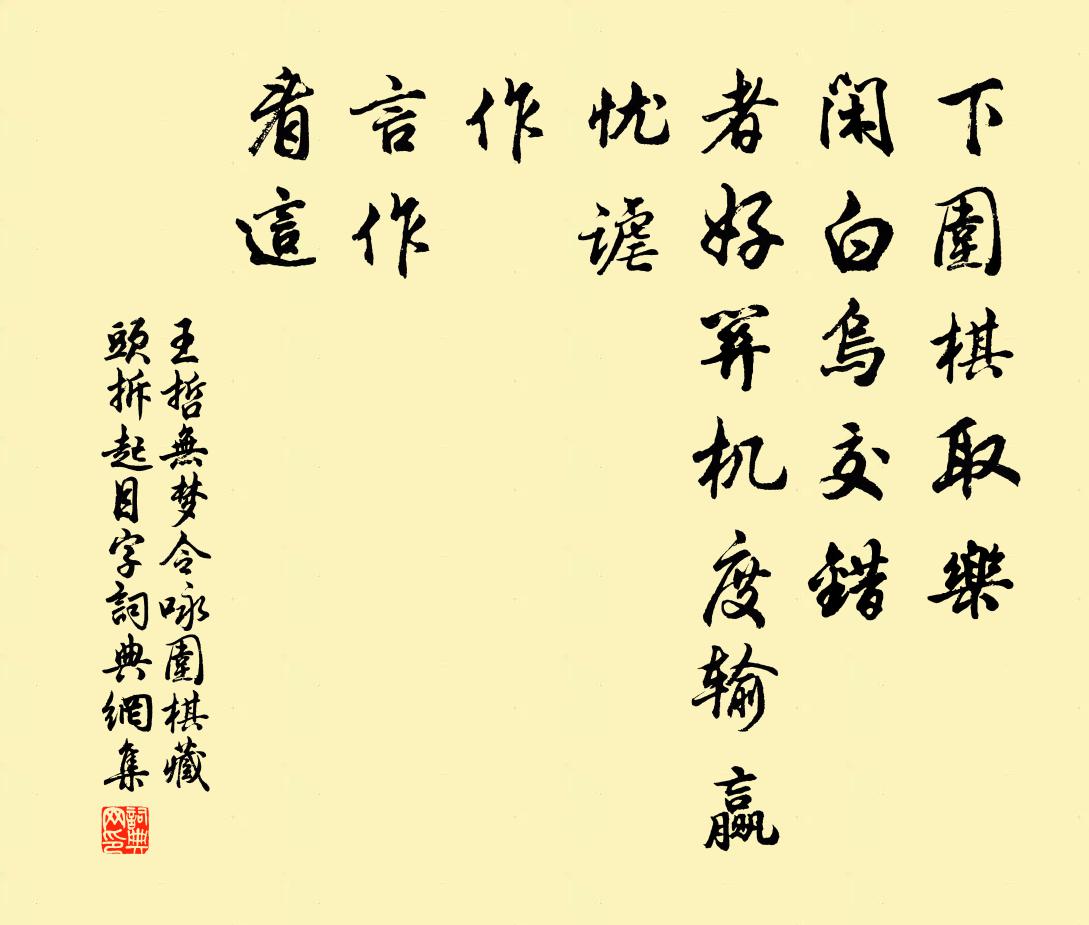 下圍棋取樂
閑白烏交錯
者好筭机度输赢
忧謔
作
言作
看這
王哲無梦令咏圍棋藏
頭拆起目字詞典網集
詞典网印